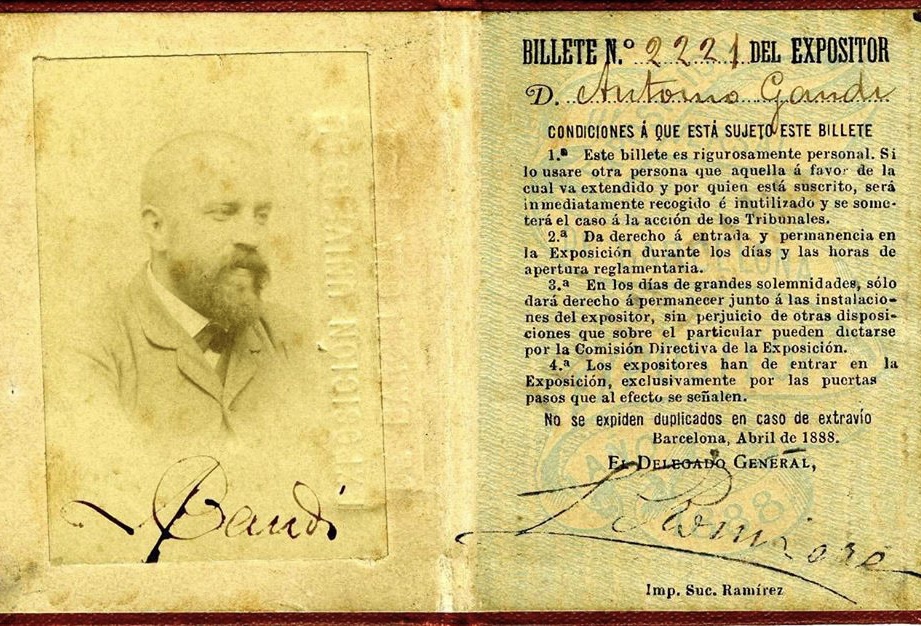 Gaudí
BILLETE N.º 2221 DEL EXPOSITOR
D. Antonio Gaudi
CONDICIONES Á QUE ESTÁ SUJETO ESTE BILLETE
1.ª Este billete es rigurosamente personal. Si
lo usare otra persona que aquella á favor de la
cual va extendido y por quien está suscrito, será
inmediatamente recogido é inutilizado y se some-
terá el caso á la acción de los Tribunales.
2.ª Da derecho á entrada y permanencia en
la Exposición durante los días y las horas de
apertura reglamentaria.
3.ª En los días de grandes solemnidades, sólo
dará derecho á permanecer junto á las instalacio-
nes del expositor, sin perjuicio de otras disposi-
ciones que sobre el particular pueden dictarse
por la Comisión Directiva de la Exposición.
4.ª Los expositores han de entrar en la
Exposición, exclusivamente por las puertas
pasos que al efecto se señalen.
No se expiden duplicados en caso de extravío
Barcelona, Abril de 1888.
EL DELEGADO GENERAL,
Imp. Suc. Ramírez